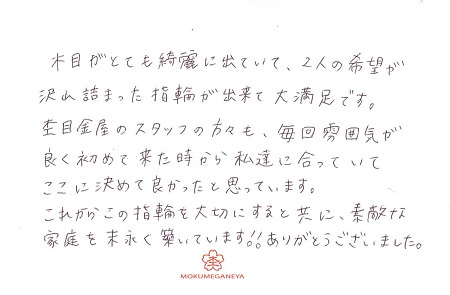 木目がとても綺麗に出ていて、2人の希望が
沢山詰まった指輪が出来て大満足です。
杢目金屋のスタッフの方々も、毎回雰囲気が
良く初めて来た時から私達に合っていて
ここに決めて良かったと思っています。
これからこの指輪を大切にすると共に、素敵な
家庭を末永く築いています!!ありがとうございました。
MOKUMEGANEYA